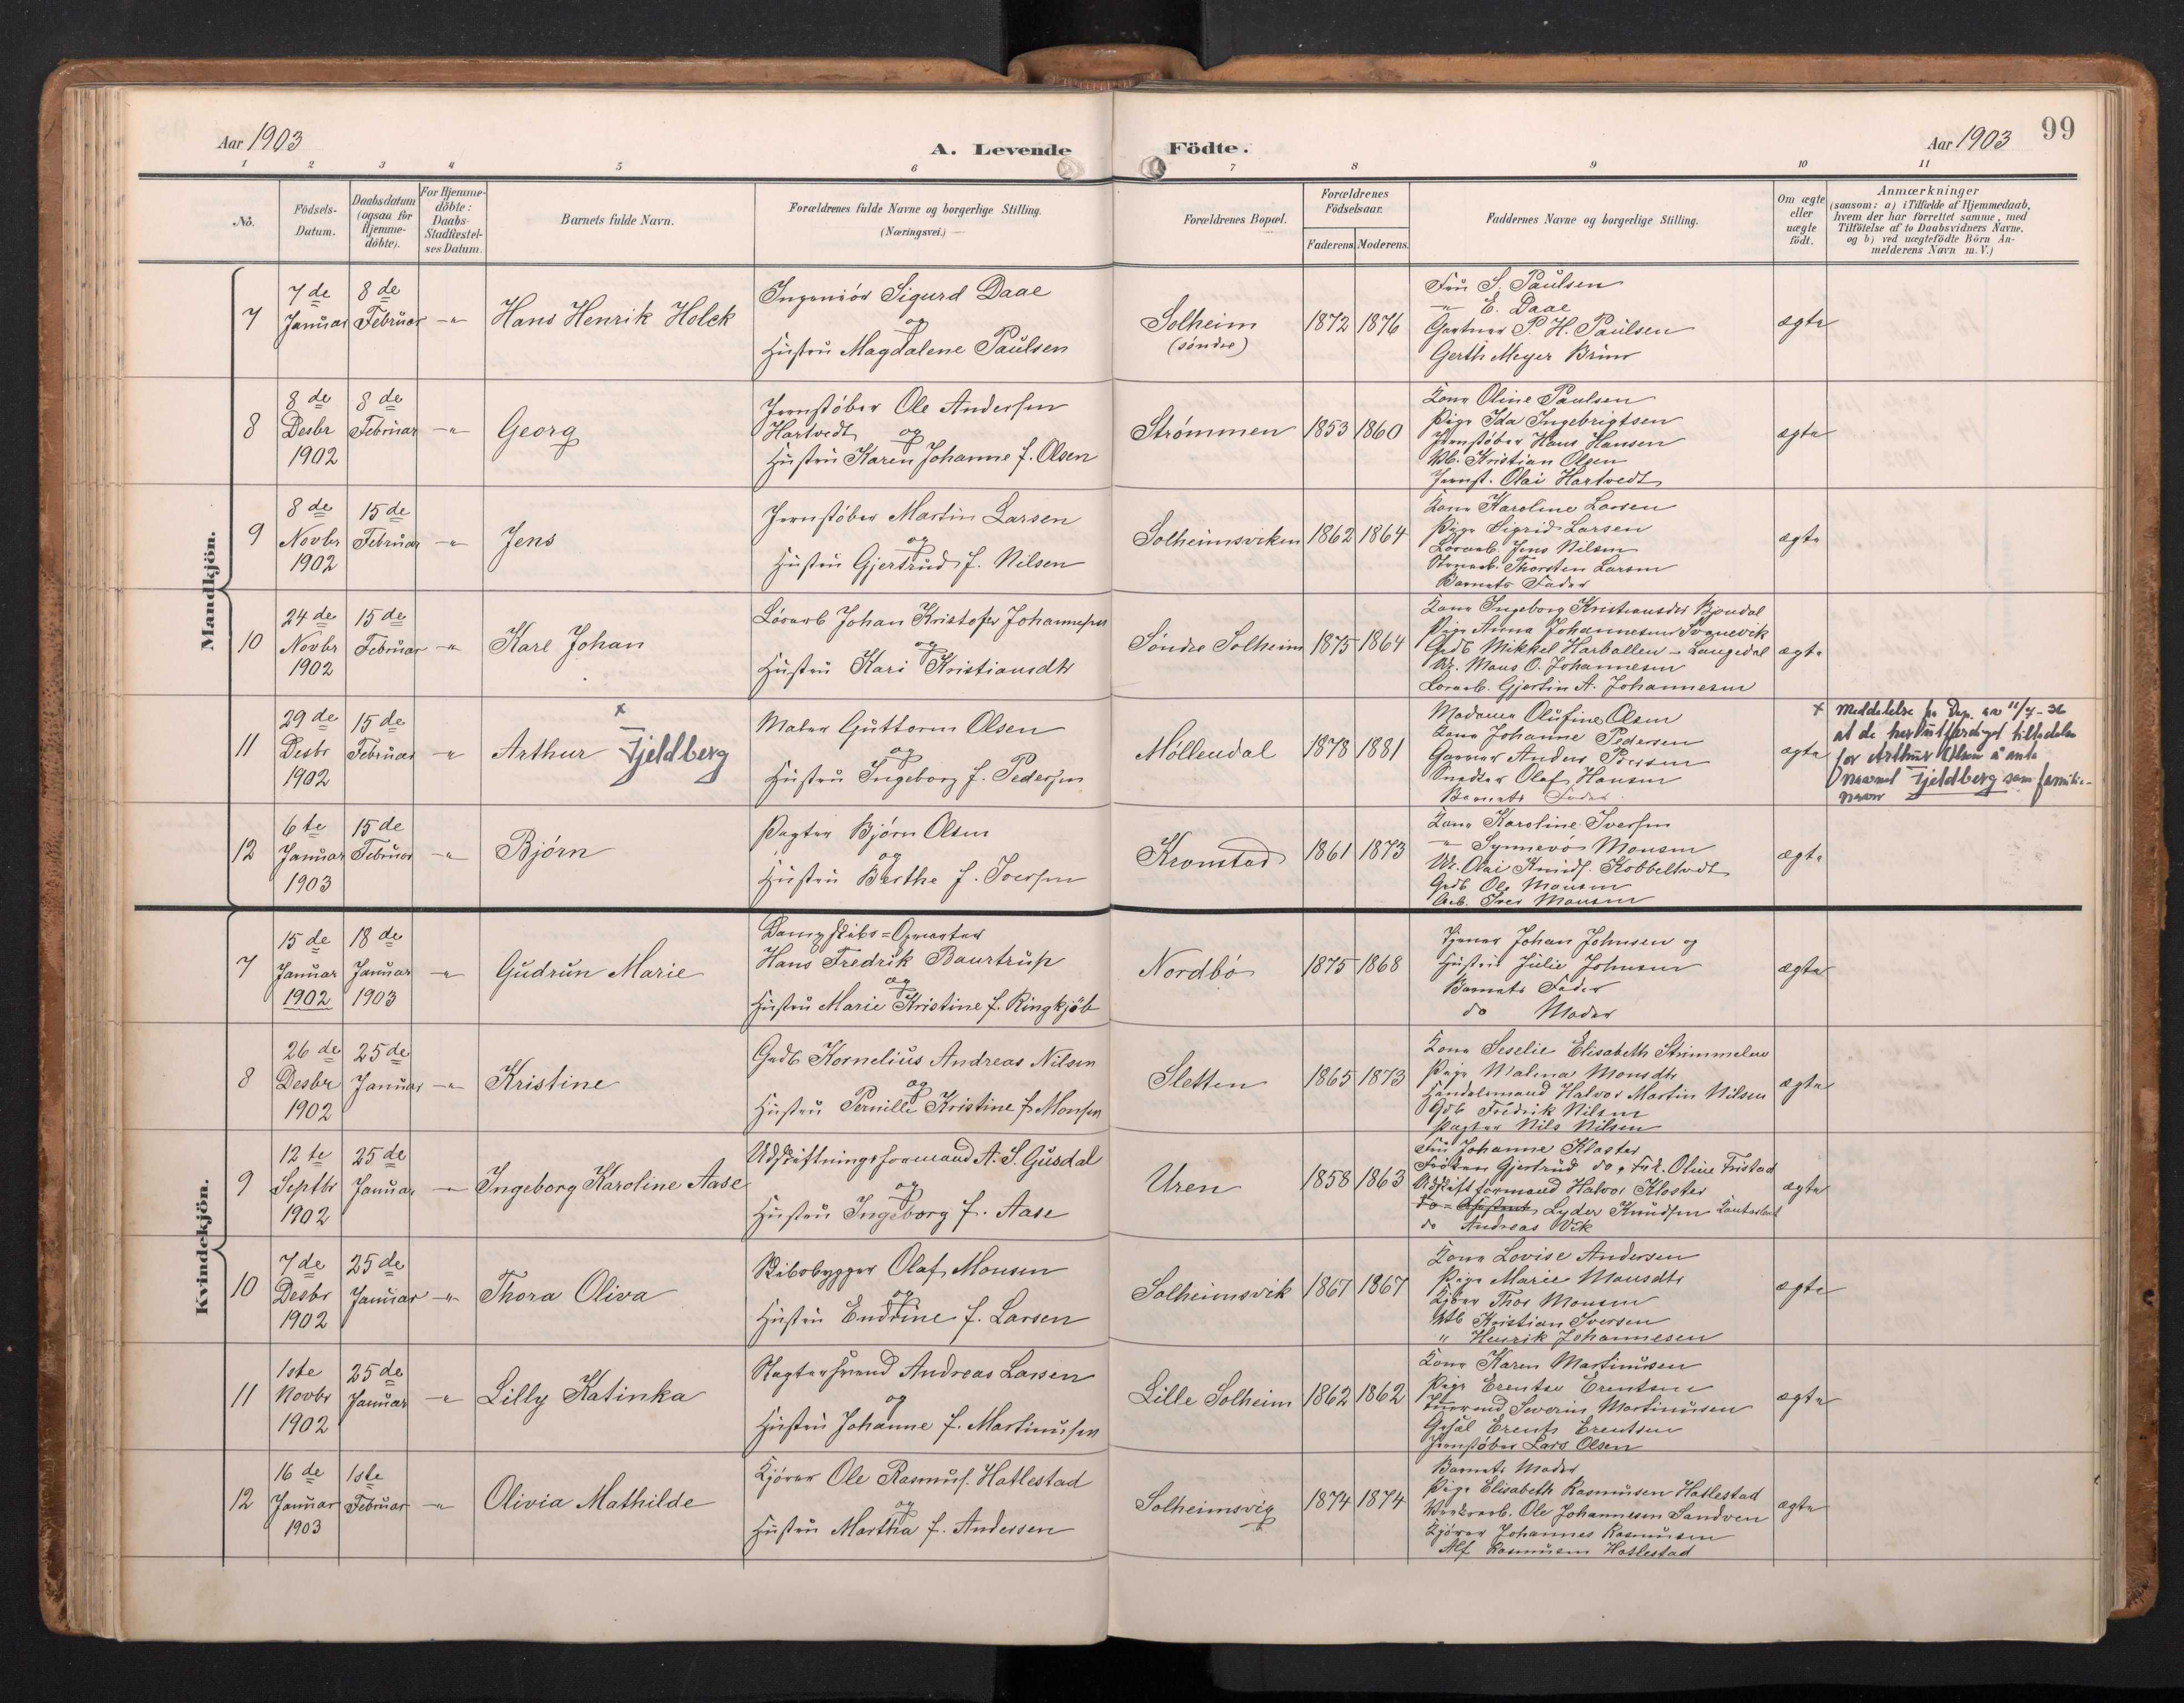 Aar 1903
A. Levende
Födte.
Aar 1903
99
1 2 3 4 5 6 7 8 9 10 11
No.
Födsels-
Datum.
Daabsdatum
(ogsaa for
Hjemme-
döbte).
For Hjemme-
döbte:
Daabs-
Stadfæstel-
ses Datum.
Barnets fulde Navn.
Forældrenes fulde Navne og borgerlige Stilling.
(Næringsvei.)
Forældrenes Bopæl.
Forældrenes
Födselsaar.
Faderens. Moderens.
Faddernes Navne og borgerlige Stilling.
Om ægte
eller
uægte
födt.
Anmærkninger
(saasom: a) i Tilfælde af Hjemmedaab,
hvem der har forrettet samme, med
Tilföielse af to Daabsvidners Navne.
og b) ved uægtefödte Börn An-
melderens Navn m.V.)
Mandkjön.
7
7de
Januar
8de
Februar
-"-
Hans Henrik Holck
Ingeniör Sigurd Daae
og
Hustru Magdalene Paulsen
Solheim
(söndre)
1872
1876
Fru S. Paulsen
-"- E. Daae
Gartner P. H. Paulsen
Gerth Meyer Bruun
ægte
8
8de
Desbr
1902
8de
Februar
-"-
Georg
Jernstöber Ole Andersen
Hartvedt og
Hustru Karen Johanne f. Olsen
Strömmen
1853
1860
Kona Oline Paulsen
Pige Ida Ingebrigtsen
Jernstöber Hans Hansen
Kristian Olsen
Jernst. Olai Hartvedt
ægte
9
8de
Novbr
1902
15de
Februar
-"-
Jens
Jernstöber Martin Larsen
og
Hustru Gjertrud f. Nilsen
Solheimsviken
1862
1864
Kona Karoline Larsen
Pige Sigrid Larsen
Jens Nilsen
Thorsten Larsen
Barnets Fader
ægte
10
24de
Novbr
1902
15de
Februar
-"-
Karl Johan
Lörarb Johan Kristofer Johannesen
og
Hustru Kari Kristiansdtr
Söndre Solheim
1875
1864
Kona Ingeborg Kristiansdtr Bjöndal
Pige Anna Johannesen
Grdb Mikkel
Mons O. Johannesen
Gjertin A. Johannesen
ægte
11
29de
Desbr
1902
15de
Februar
-"-
x
Arthur Fjeldberg
Maler Guttorm Olsen
og
Hustru Ingeborg f. Pedersen
Möllendal
1878
1881
Madame Olufine Olsen
Kona Johanne Pedersen
Garver Anders
Snedker Olaf Hansen
Barnets Fader
ægte
x Meddelelse fra Dep. av 11/7-36
at de har utferdiget tilladelse
for Arthur Olsen å anta
navnet Fjeldberg som familie-
navn
12
6te
Januar
1903
15de
Februar
-"-
Björn
Pagter Björn Olsen
og
Hustru Berthe f. Iversen
Kronstad
1861
1873
Kona Karoline Iversen
-"- Synnevö Monsen
Olai Kobbeltvedt
Grdb Ole Monsen
Arb. Iver Monsen
ægte
Kvindekjön.
7
15de
Januar
1902
18de
Januar
1903
-"-
Gudrun Marie
Dampskibs=Opvarter
Hans Fredrik Baurtrup
og
Hustru Marie Kristine f. Ringkjöb
Nordbö
1875
1868
Tjener Johan Johnsen og
Hustru Julie Johnsen
Barnets Fader
do Moder
ægte
8
26de
Desbr
1902
25de
Januar
-"-
Kristine
Grdb Kornelius Andreas Nilsen
og
Hustru Pernille Kristine f. Monsen
Sletten
1865
1873
Kona Seselie Elisabeth
Pige Malina Monsdtr
Handelsmand Halvor Martin Nilsen
Gdb Fredrik Nilsen
Pagter Nils Nilsen
ægte
9
12te
Septbr
1902
25de
Januar
-"-
Ingeborg Karoline Aase
Udskiftningsformand A. S. Gusdal
og
Hustru Ingeborg f. Aase
Uren
1858
1863
Fru Johanne Kloster
Fröken Gjertrud do, Frk. Oline Tristad
Udskiftformand Halvor Kloster
do Lyder Knudsen
do Andreas Vik
ægte
10
7de
Desbr
1902
25de
Januar
-"-
Thora Oliva
Skibsbygger Olaf Monsen
og
Hustru Endrine f. Larsen
Solheimsvik
1867
1867
Kona Lovise Andersen
Pige Marie Monsdtr
Kjörer Thor Monsen
Kristian Iversen
" Henrik Johannesen
ægte
11
1ste
Novbr
1902
25de
Januar
-"-
Lilly Katinka
Slagtersvend Andreas Larsen
og
Hustru Johanne f. Martinusen
Lille Solheim
1862
1862
Kona Karen Martinusen
Pige Erentse Erentsen
Severin Martinusen
Erents Erentsen
Jernstöber Lars Olsen
ægte
12
16de
Januar
1903
1ste
Februar
-"-
Olivia Mathilde
Kjörer Ole Rasmus. Hatlestad
og
Hustru Martha f. Andersen
Solheimsvig
1874
1874
Barnets Moder
Pige Elisabeth Rasmusen Hatlestad
Ole Johannesen Sandven
Kjörer Johannes Rasmusen
Alf Rasmusen Hatlestad
ægte